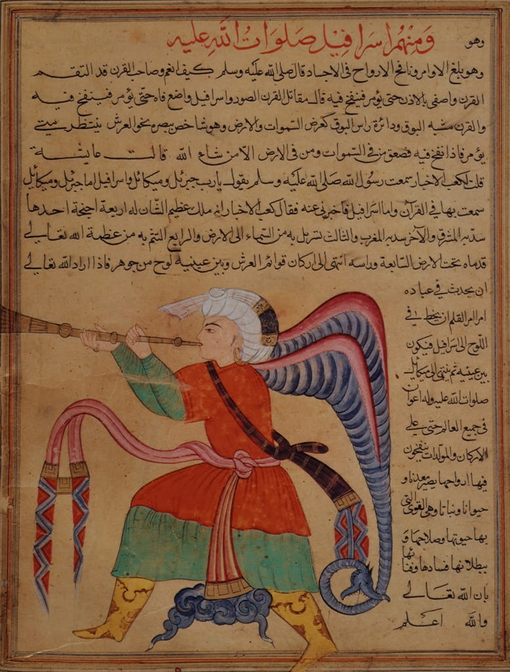 وهو ومنهم اسرافيل صلوات الله عليه
وهو يبلغ الاوامر ونافخ الارواح في الاجساد قال صلى الله عليه وسلم كيف انعم وصاحب القرن قد التقم
القرن واصغى بالاذن حتى يؤمر فينفخ فيه قال مقاتل القرن الصور واسرافيل واضع فاه حتى يؤمر فينفخ فيه
والقرن مشبه البوق ودائرة راس البوق كعرض السموات والارض وهو شاخص ببصره نحو العرش ينتظر متى
يؤمر فاذا نفخ فيه فصعق من في السموات ومن في الارض الا من شاء الله قالت عايشة
قلت لكعب الاخبار سمعت رسول الله صلى الله عليه وسلم يقول يارب جبرئيل وميكائيل واسرافيل اما جبرئيل وميكائيل
سمعت بها في القرآن واما اسرافيل فاخبرني عنه فقال كعب الاخبار انه ملك عظيم الشان له اربعة اجنحة احدها
سد به المشرق والآخر سد به المغرب والثالث تسربل به من السماء الى الارض والرابع التثم به من عظمة الله تعالى
قدماه تحت الارض السابعة وراسه انتهى الى اركان قوائم العرش وبين عينيه لوح من جوهر فاذا اراد الله تعالى
ان يحدث في عباده
امرا امر القلم ان يخط في
اللوح الى اسرافيل فيكون
بين عينيه ثم ينتهي الى ميكائيل
صلوات الله عليه وله اعوان
في جميع العالم حتى على
الاركان والمولدات ينفخون
فيها ارواحها يصير معدنا و
حيوانا ونباتا وهي القوى التي
بها حيوتها وصلاحها و
ببطلانها فسادها وفنائها
بان الله تعالى
والله اعلم